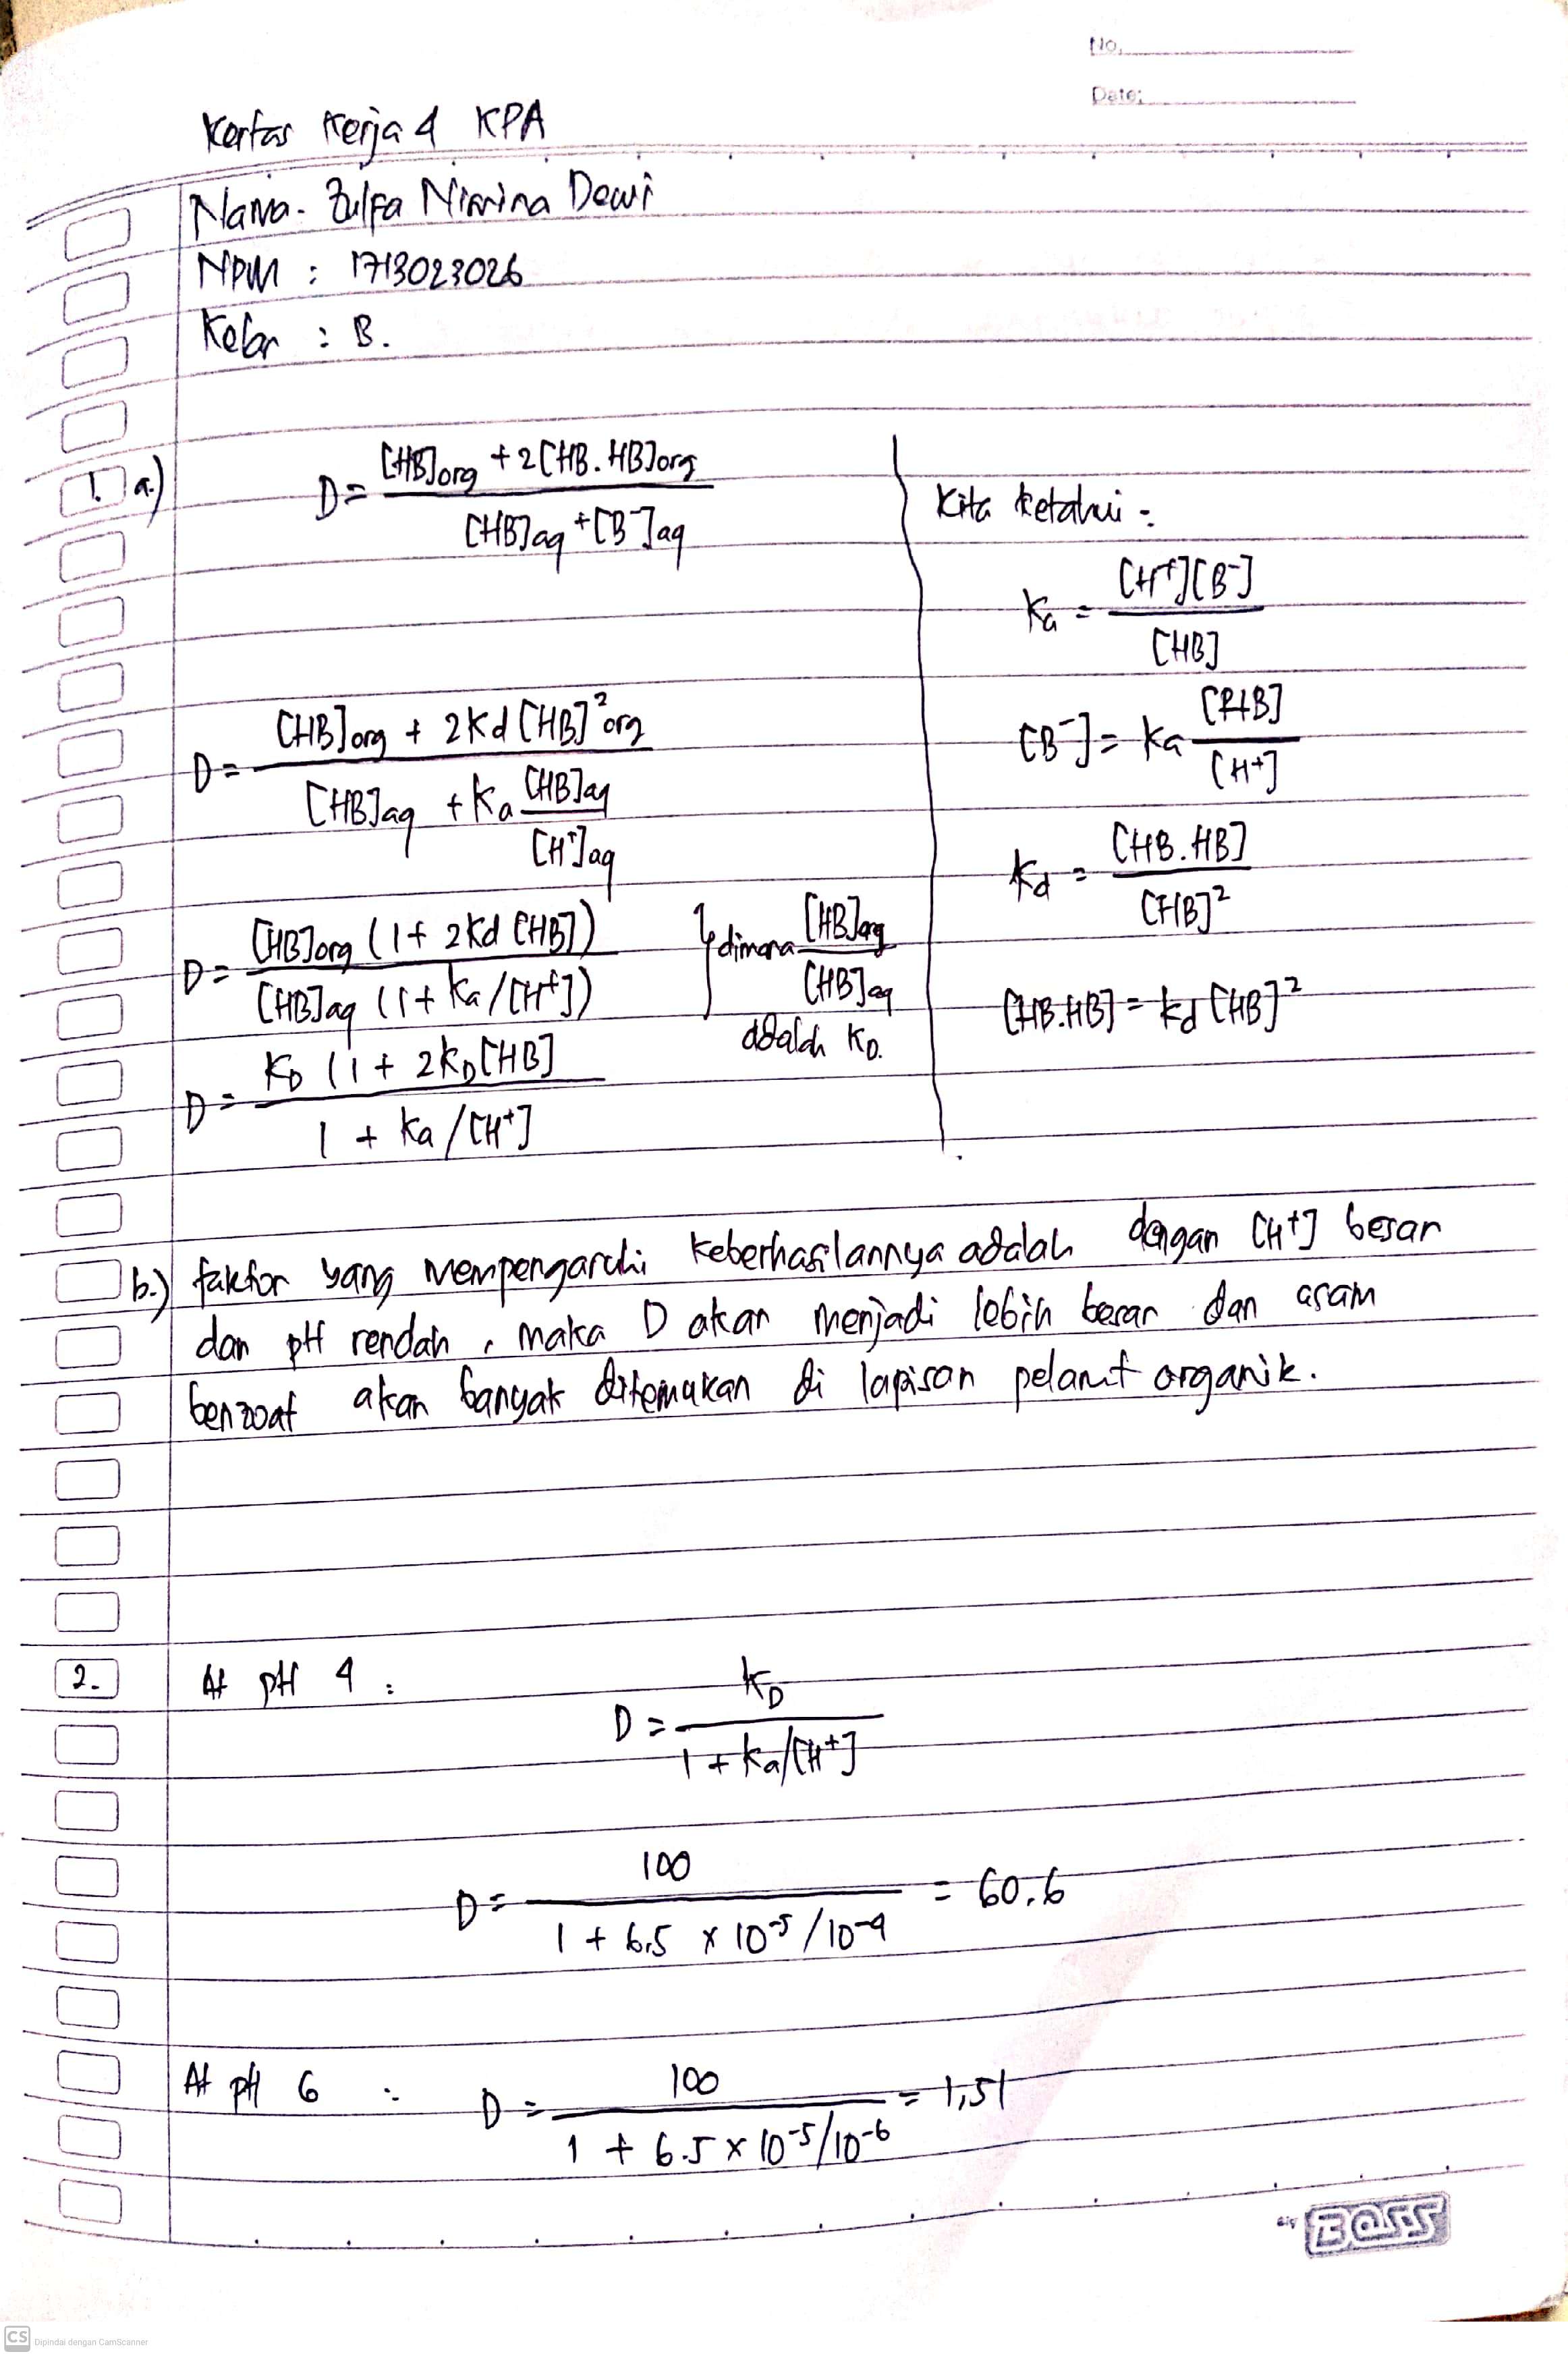 No.
Date:
Kertas Kerja 4 KPA
Nama. Zulfa Nimina Dewi
NPM : 1713023026
Kelas : B.
1. a.) D = [HB]org + 2[HB.HB]org / [HB]aq + [B-]aq
D = [HB]org + 2Kd [HB]²org / [HB]aq + Ka [HB]aq / [H+]aq
D = [HB]org (1 + 2Kd [HB]) / [HB]aq (1 + Ka/[H+])
dimana [HB]org / [HB]aq
adalah KD.
D = KD (1 + 2KD[HB] / 1 + Ka/[H+]
Kita Ketahui :
Ka = [H+][B-] / [HB]
[B-] = Ka [HB] / [H+]
Kd = [HB.HB] / [HB]²
[HB.HB] = Kd [HB]²
b.) faktor yang mempengaruhi keberhasilannya adalah dengan [H+] besar
dan pH rendah, maka D akan menjadi lebih besar dan asam
benzoat akan banyak ditemukan di lapisan pelarut organik.
2. At pH 4 :
D = KD / 1 + Ka/[H+]
D = 100 / 1 + 6,5 x 10-5/10-4 = 60,6
At pH 6 : D = 100 / 1 + 6.5 x 10-5/10-6 = 1,51
BIG BOSS
CS Dipindai dengan CamScanner